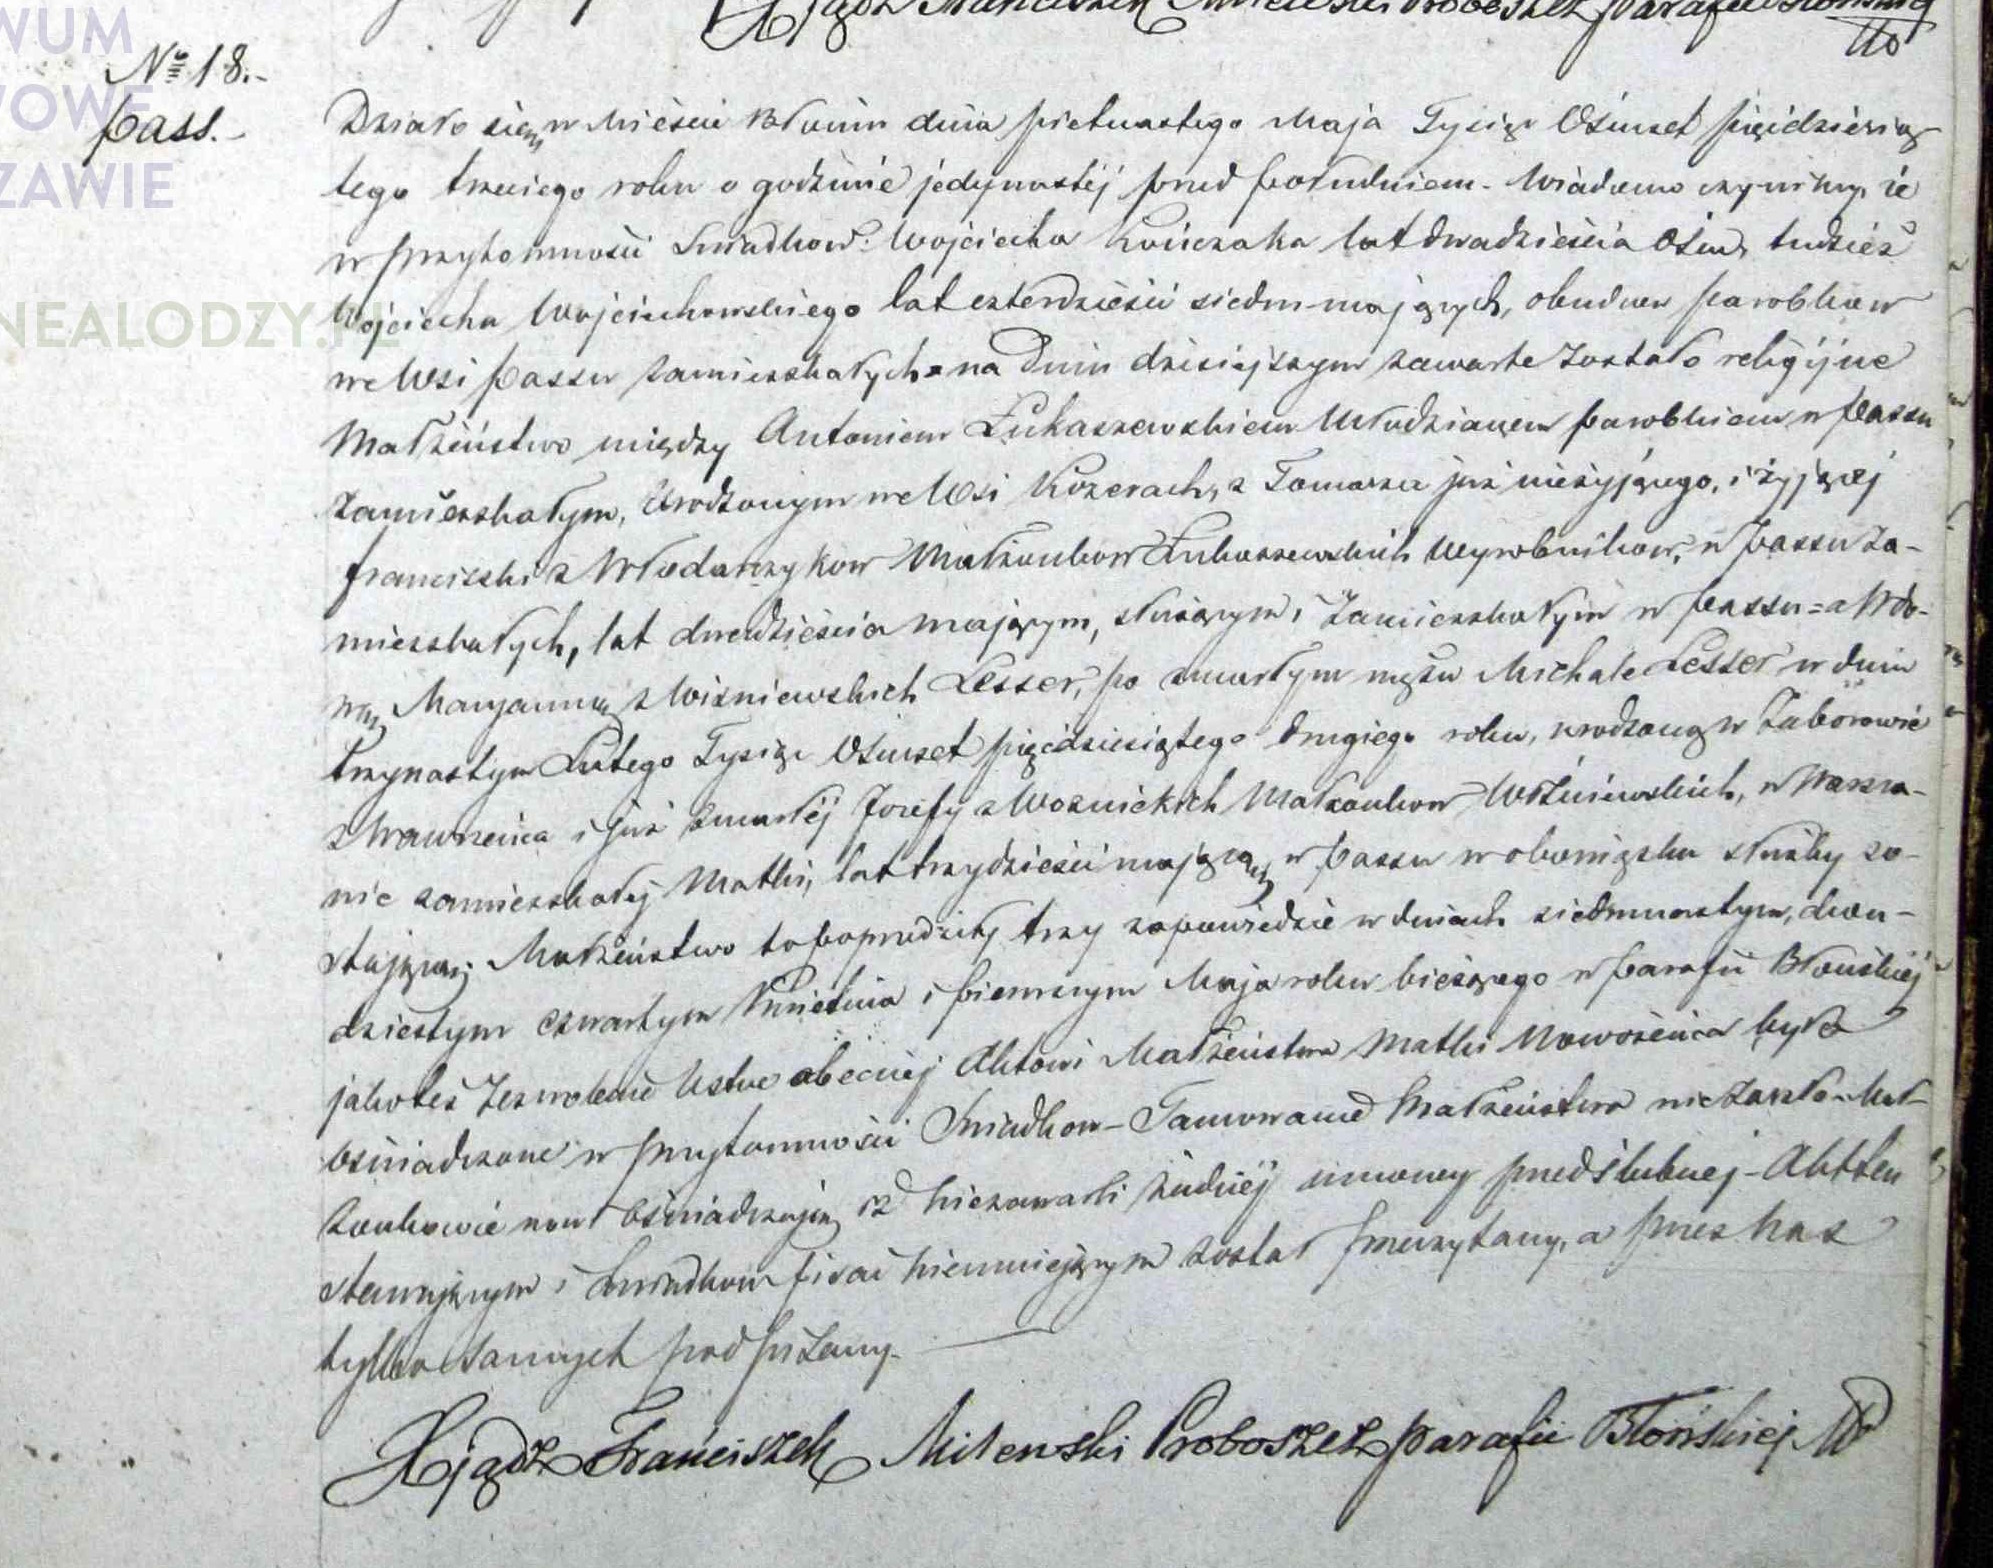 Xjądz Franciszek Milewski Proboszcz parafii Błońskiej
WUM
WOWE
ZAWIE
NEALODZY.PL
№ 18.-
Pass.-
Działo się w Mieście Błoniu dnia pietnastego Maja Tysiąc Ośmset pięćdziesią-
tego trzeciego roku o godzinie jedynastéj przed południem. Wiadomo czyniemy że
w przytomności Swiadków: Wojciecha Kończaka lat dwadzieścia Ośm, tudzież
Wojciecha Wojciechowskiego lat czterdzieści siedm mających, obudwu parobków
we Wsi Passu zamieszkałych = na Dniu dzisiejszym zawarte Zostało religijne
Małżeństwo między Antonim Łukaszewskiem Młodzianem parobkiem w Passu
zamieszkałym, Urodzonym we Wsi Kozerach, z Tomasza już nieżyjącego, i żyjącej
Franciszki z Włodarczyków Małżonków Łukaszewskich Wyrobników, w Passu Za-
mieszkałych, lat dwadzieścia mającym, służącym i Zamieszkałym w Passu = a Wdo-
wą Maryanną z Wiśniewskich Lesser, po zmarłym mężu Michale Lesser w dniu
trzynastym Lutego Tysiąc Ośmset pięćdziesiątego Drugiego roku, urodzoną w Zaborowie
z Wawrzeńca i już zmarłéj Józefy z Woznickich Małżonków Wiśniewskich, w Warsza-
wie zamieszkałej Matki, lat trzydzieści mającą, w Passu w obowiązku służby zo-
stającą; Małżeństwo to poprzedziły trzy zapowiedzie w dniach siedmnastym, dwu-
dziestym czwartym Kwietnia i pierwszym Maja roku bieżącego w parafii Błońskiej
jakoteż Zezwolenie Ustne obecnéj Aktowi Małżeństwa Matki Nowożeńca było
Oświadczone w przytomności Swiadków - Tamowanie Małżeństwa nie Zaszło. Mał-
żonkowie nowi Oświadczają iż niezawarli żadnéj umowy przedślubnej - Akt ten
stawającym i Swiadkom pisać nieumiejącym został przeczytany, a przez nas
tylko samych podpisany. —
Xjądz Franciszek Milewski Proboszcz parafii Błońskiej